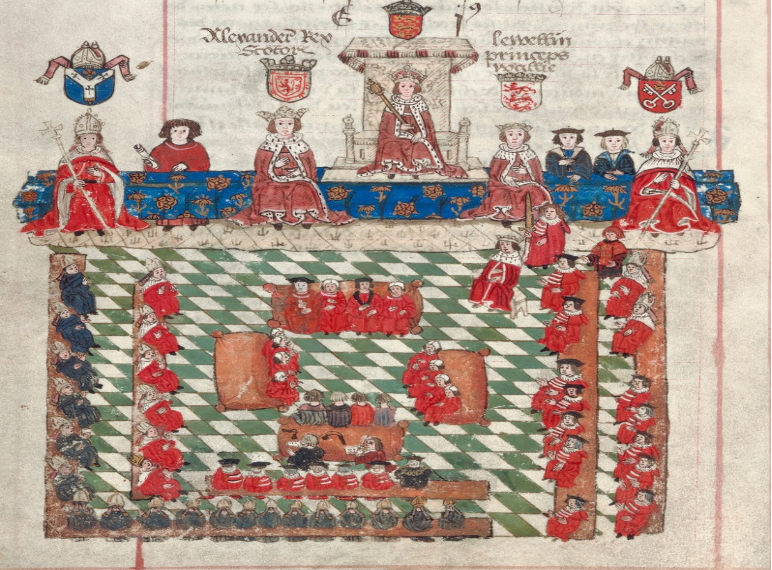 E
Alexander Rex
Scotor
lewellin
princeps
wallie